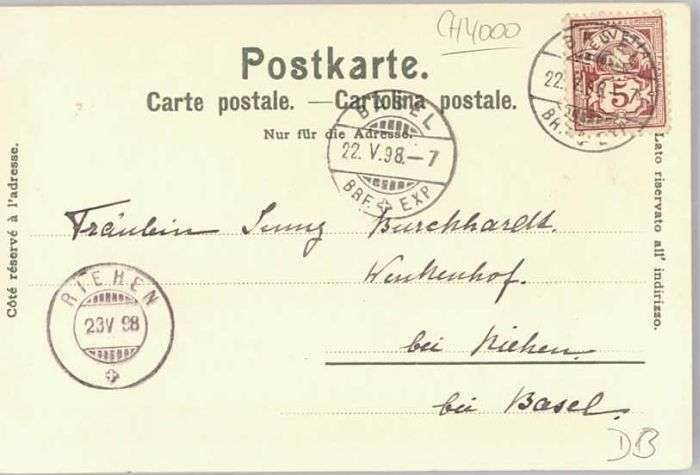 CH4000
Postkarte.
Carte postale. — Cartolina postale.
Nur für die Adresse.
BASEL
22.V.98.–7
BRF. EXP.
HELVETIA
5
22.
Côté réservé à l'adresse.
Lato riservato all' indirizzo.
Fräulein Burckhardt.
Wenkenhof.
bei Riehen.
bei Basel.
RIEHEN
23 V 98
DB